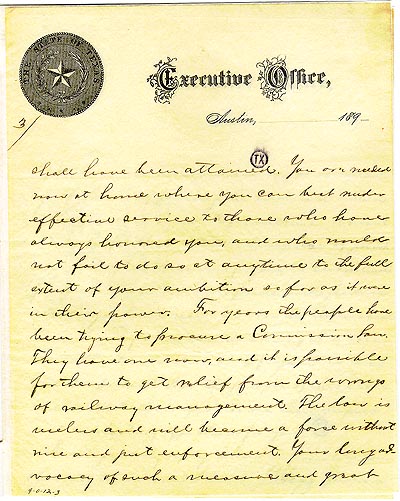 THE STATE OF TEXAS
Executive Office,
Austin, 189-
3/
TX
shall have been attained. You are needed
now at home where you can best render
effective service to those who have
always honored you, and who would
not fail to do so at anytime to the full
extent of your ambition so far as it were
in their power. For years the people have
been trying to procure a Commission law.
They have one now, and it is possible
for them to get relief from the wrongs
of railway management. The law is
useless and will become a farce without
nice and just enforcement. Your long ad-
vocacy of such a measure and great